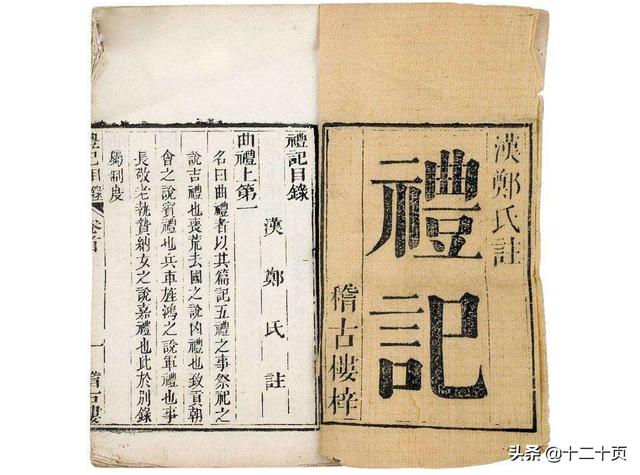 漢鄭氏註
禮記
稽古樓梓
禮記目錄
漢鄭氏註
曲禮上第一
名曰曲禮者以其篇記五禮之事祭祀之
說吉禮也喪荒去國之說凶禮也致貢朝
會之說賓禮也兵車旌鴻之說軍禮也事
長敬老執贄納女之說嘉禮也此於別錄
屬制度
禮記目錄
卷首
一
稽古樓
头条 @十二十页